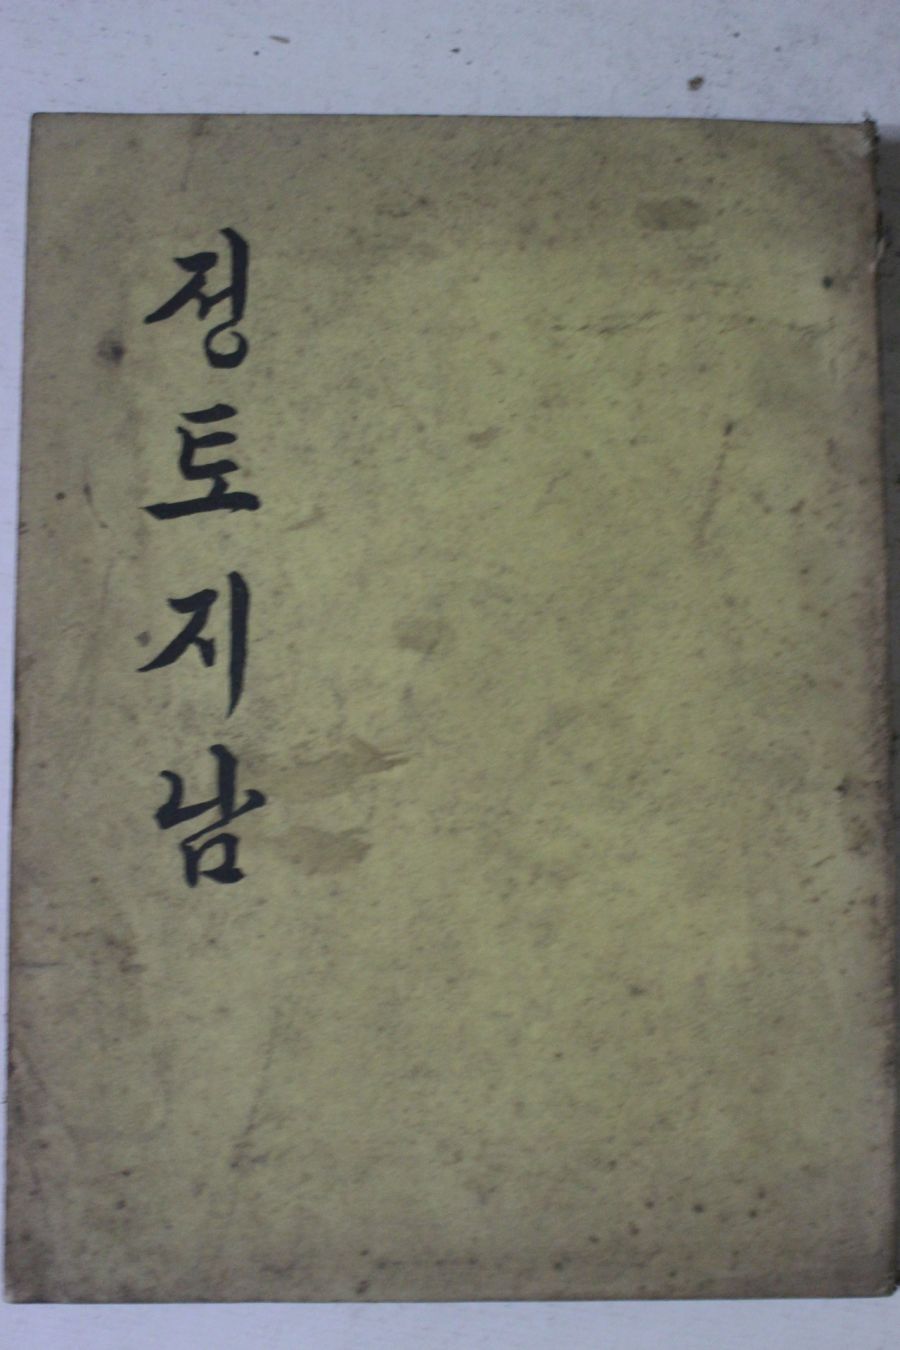 정토지남